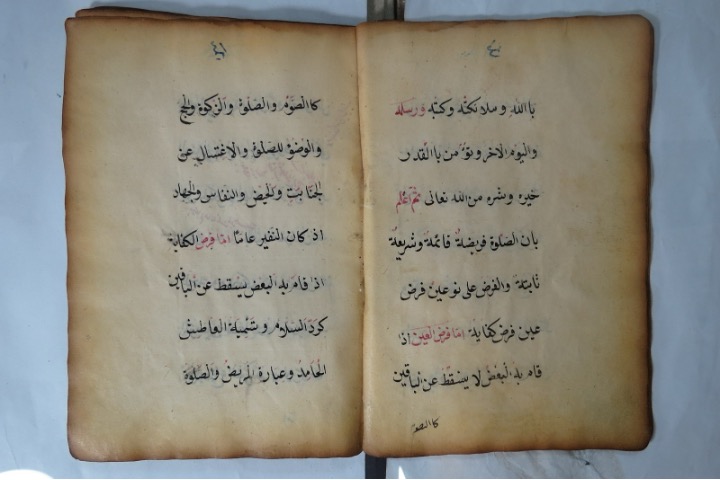 باالله وملائكته وكتبه ورسله
واليوم الآخر وتؤمن باالقدر
خيره وشره من الله تعالى ثم اعلم
بان الصلوة فريضة قائمة وشريعة
ثابتة والفرض على نوعين فرض
عين فرض كفاية اما فرض العين اذا
قام به البعض لا يسقط عن الباقين
كاالصوم
كاالصوم والصلوة والزكوة والحج
والوضوء للصلوة والاغتسال عن
الجنابت والحيض والنفاس والجهاد
اذ كان النفير عاما اما فرض الكفاية
اذا قام به البعض يسقط عن الباقين
كرد السلام وتشميلة العاطش
الحامد وعبارة المريض والصلوة